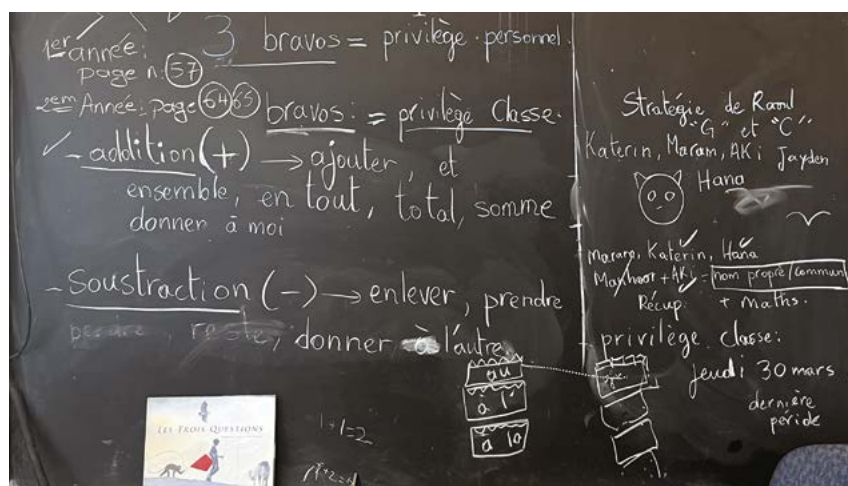 1er année:
page n: 57
3 bravos = privilège personnel.
2em Année: page 64 65
bravos: = privilège Classe.
- addition (+) → ajouter, et
ensemble, en tout, total, somme
donner à moi
- Soustraction (-) → enlever, prendre
perdre, reste, donner à l'autre
au
à l'
à la
LES TROIS QUESTIONS
1+1=2
Stratégie de Raoul
"G" et "C"
Katerin, Maram, AKi Jayden
Hana
Maram, Katerin, Hana
+ AKi = nom propre/commun
Récup: + maths.
- privilège classe:
jeudi 30 mars
dernière
péride